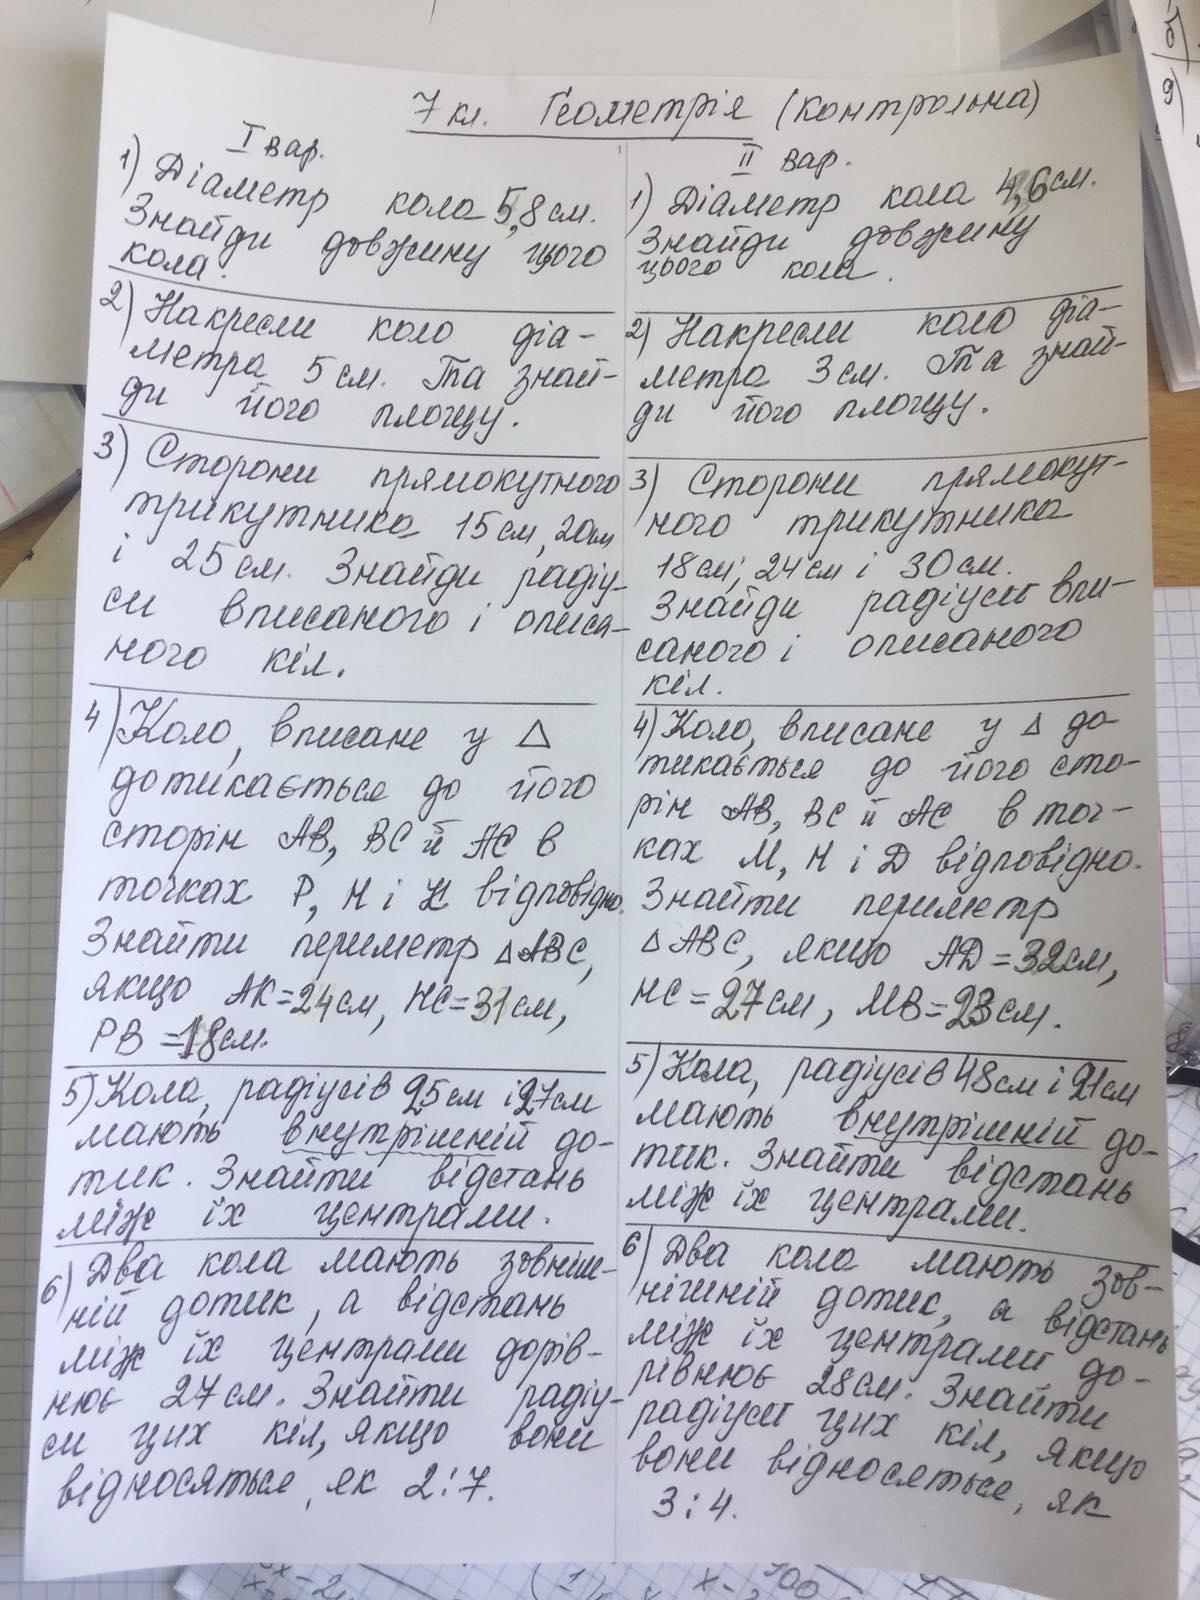 7 кл. Геометрія (контрольна)
I вар.
1) Діаметр кола 5,8 см.
Знайди довжину цього
кола.
2) Накресли коло діа-
метра 5 см. Та знай-
ди його площу.
3) Сторони прямокутного
трикутника 15 см, 20 см
і 25 см. Знайди радіу-
си вписаного і описа-
ного кіл.
4) Коло, вписане у △
дотикається до його
сторін АВ, ВС й АС в
точках Р, Н і К відповідно.
Знайти периметр △АВС,
якщо АК=24 см, НС=31 см,
РВ=18 см.
5) Кола, радіусів 25 см і 27 см
мають внутрішній до-
тик. Знайти відстань
між їх центрами.
6) Два кола мають зовніш-
ній дотик, а відстань
між їх центрами дорів-
нює 27 см. Знайти радіу-
си цих кіл, якщо вони
відносяться, як 2:7.
II вар.
1) Діаметр кола 4,6 см.
Знайди довжину
цього кола.
2) Накресли коло діа-
метра 3 см. Та знай-
ди його площу.
3) Сторони прямокут-
ного трикутника
18 см; 24 см і 30 см.
Знайди радіуси впи-
саного і описаного
кіл.
4) Коло, вписане у △ до-
тикається до його сто-
рін АВ, ВС й АС в точ-
ках М, Н і D відповідно.
Знайти периметр
△АВС, якщо АD=32 см,
НС=27 см, МВ=23 см.
5) Кола, радіусів 48 см і 21 см
мають внутрішній до-
тик. Знайти відстань
між їх центрами.
6) Два кола мають зов-
нішній дотик, а відстань
між їх центрами до-
рівнює 28 см. Знайти
радіуси цих кіл, якщо
вони відносяться, як
3:4.